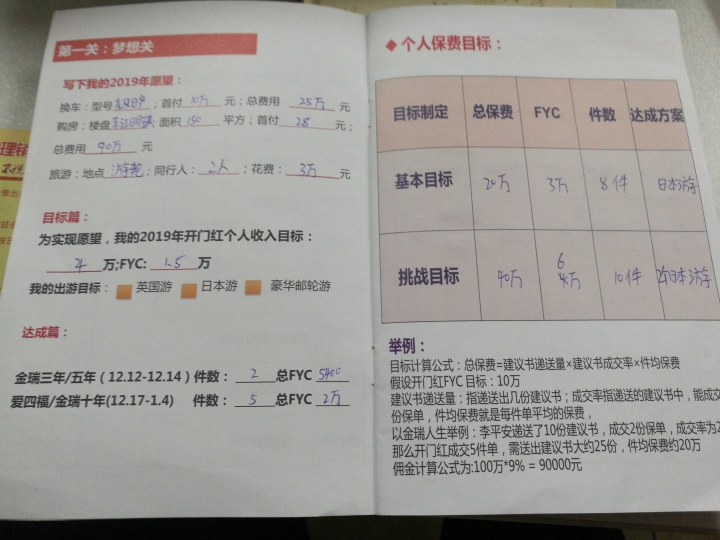 第一关：梦想关
写下我的2019年愿望：
换车：型号 ；首付 10万 元；总费用 25万 元
购房：楼盘 面积 150 平方；首付 28 元；
总费用 90万 元
旅游：地点 游轮；同行人： 2人 ；花费： 3万 元
目标篇：
为实现愿望，我的2019年开门红个人收入目标：
4 万;FYC: 1.5 万
我的出游目标： 英国游 日本游 豪华邮轮游
达成篇：
金瑞三年/五年（12.12-12.14）件数： 2 总FYC 5400
爱四福/金瑞十年(12.17-1.4) 件数： 5 总FYC 2万
◆ 个人保费目标：
目标制定 总保费 FYC 件数 达成方案
基本目标 20万 3万 8件 日本游
挑战目标 40万 6 4万 10件 日本游
举例：
目标计算公式：总保费=建议书递送量×建议书成交率×件均保费
假设开门红FYC 目标：10万
建议书递送量：指递送出几份建议书；成交率指递送的建议书中，能成交
份保单，件均保费就是每件单平均的保费，
以金瑞人生举例：李平安递送了10份建议书，成交2份保单，成交率为2
那么开门红成交5件单，需送出建议书大约25份，件均保费约20万
佣金计算公式为:100万*9% = 90000元
理销